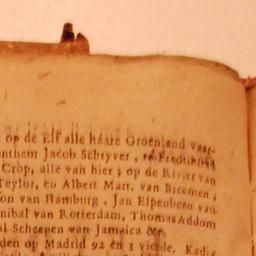 op de Elf alle haare Groenland vaar-
onthem Jacob Schryver, te Fredrikstad
Crop, alle van hier; op de Rivier van
Teylor, en Albert Matt. van Breemen,
on van Hamburg, Jan Elpenbeen van
nibal van Rotterdam, Thomas Addom
al Scheepen van Jamaica &c.
den op Madrid 92 en 3 vierde, Kadix